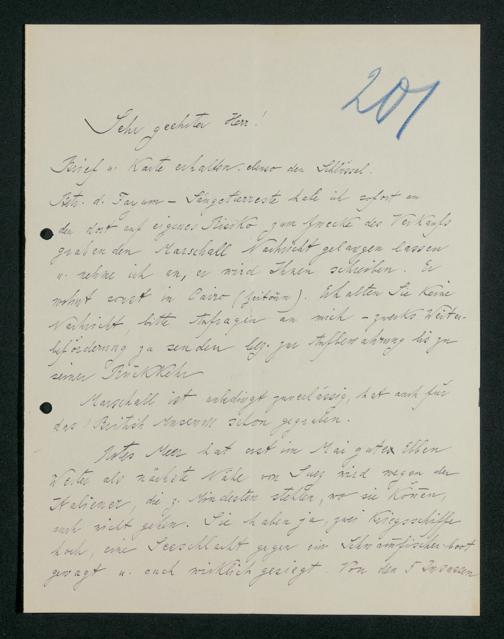 201
Sehr geehrter Herr!
Brief u. Karte erhalten, ebenso den Schlüssel.
Betr. d. Fayum - Säugetierreste habe ich sofort an
den dort auf eigenes Risiko zum Zwecke des Verkaufs
grabenden Marschall Nachricht gelangen lassen
u. nehme ich an, er wird Ihnen schreiben. Er
wohnt sonst in Cairo (). Erhalten Sie keine
Nachricht, bitte Anfragen an mich - zwecks Weiter-
beförderung zu senden bez. zur Aufbewahrung bis zu
seiner Rückkehr
Marschall ist unbedingt zuverlässig, hat auch für
das British Museum schon gegraben.
Rotes Meer hat erst im Mai gute Ebben
Weiter als nächste Nähe von Suez wird wegen der
Italiener, die z. Mindesten stehlen, wo sie können,
auch nicht gehen. Sie haben ja, zwei Kriegsschiffe
hoch, eine Seeschlacht gegen ein Schwammfischerboot
gewagt u. auch wirklich gesiegt. Von den 5 Insassen